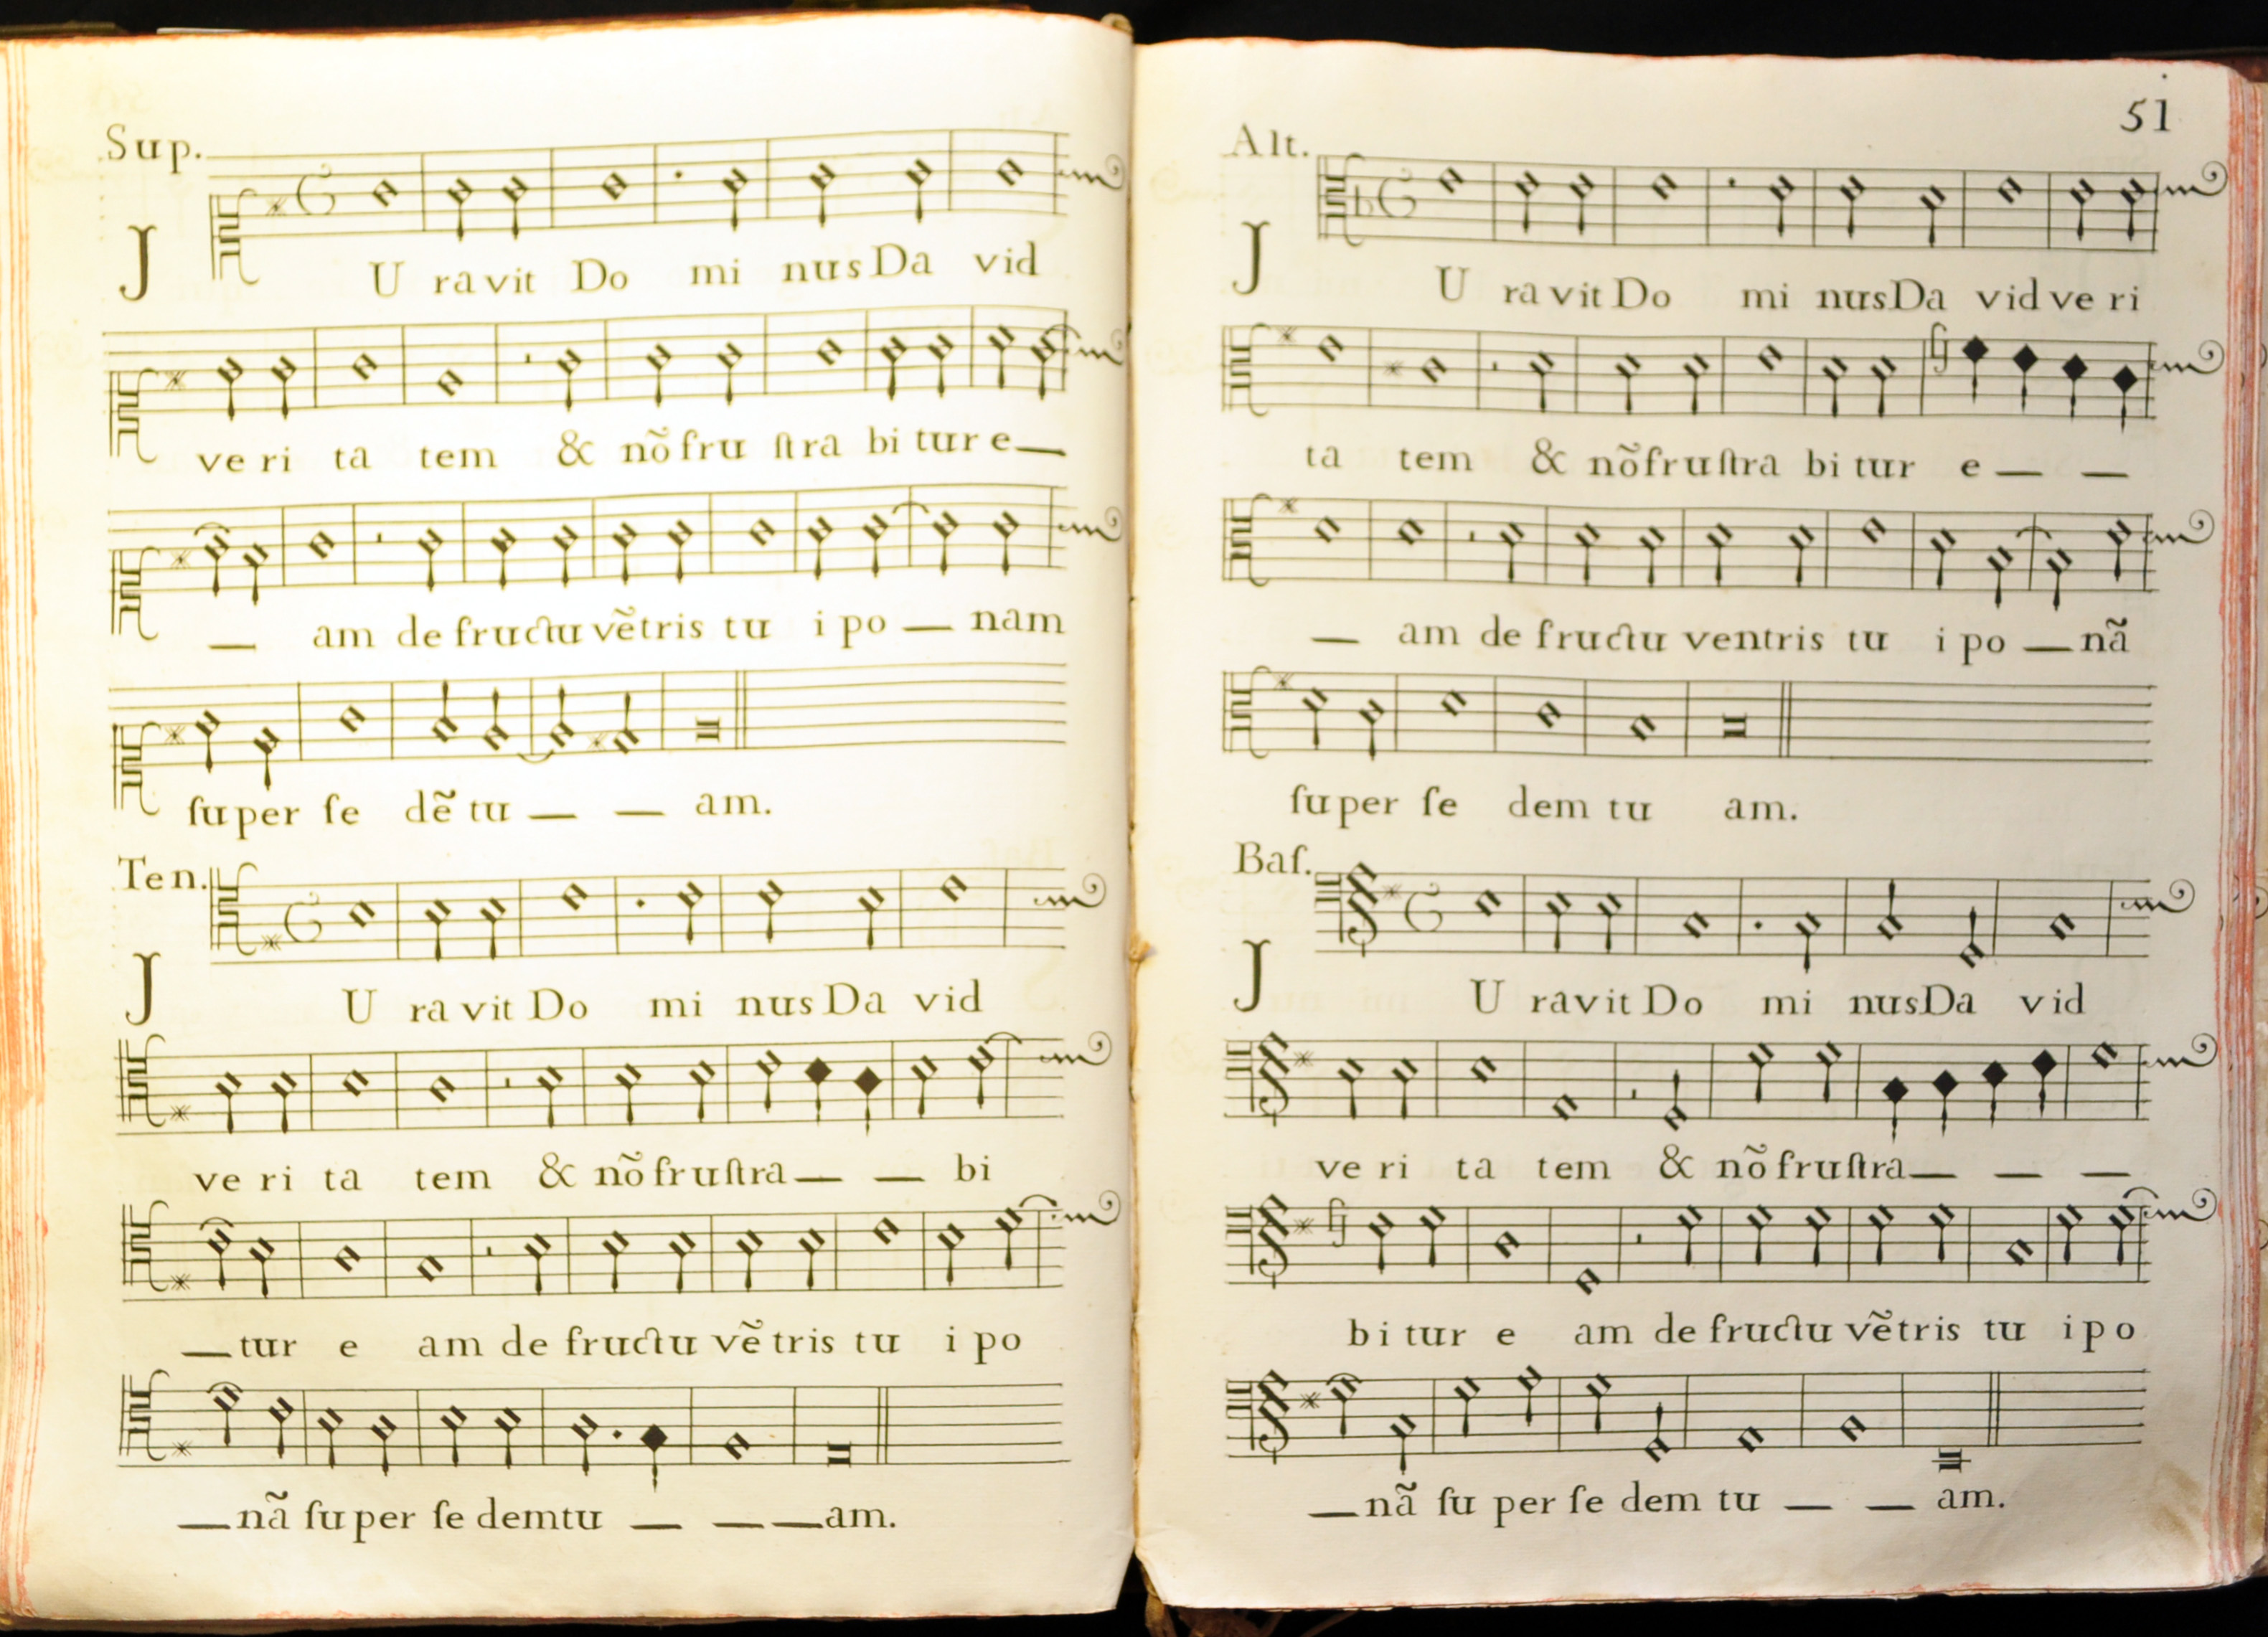 Sup.
JU ra vit Do mi nus Da vid
ve ri ta tem & nõ fru ſtra bi tur e—
— am de fructu vẽtris tu i po — nam
ſuper ſe dẽ tu — — am.
Ten.
JU ra vit Do mi nus Da vid
ve ri ta tem & nõ fruſtra — — bi
— tur e am de fructu vẽ tris tu i po
— nã ſuper ſe demtu — — — am.
51
Alt.
JU ra vit Do mi nus Da vid ve ri
ta tem & nõ fruſtra bi tur e — —
— am de fructu ventris tu i po — nã
ſuper ſe dem tu am.
Baſ.
JU ravit Do mi nus Da vid
ve ri ta tem & nõ fruſtra — — —
bi tur e am de fructu vẽtris tu i po
— nã ſu per ſe dem tu — — am.